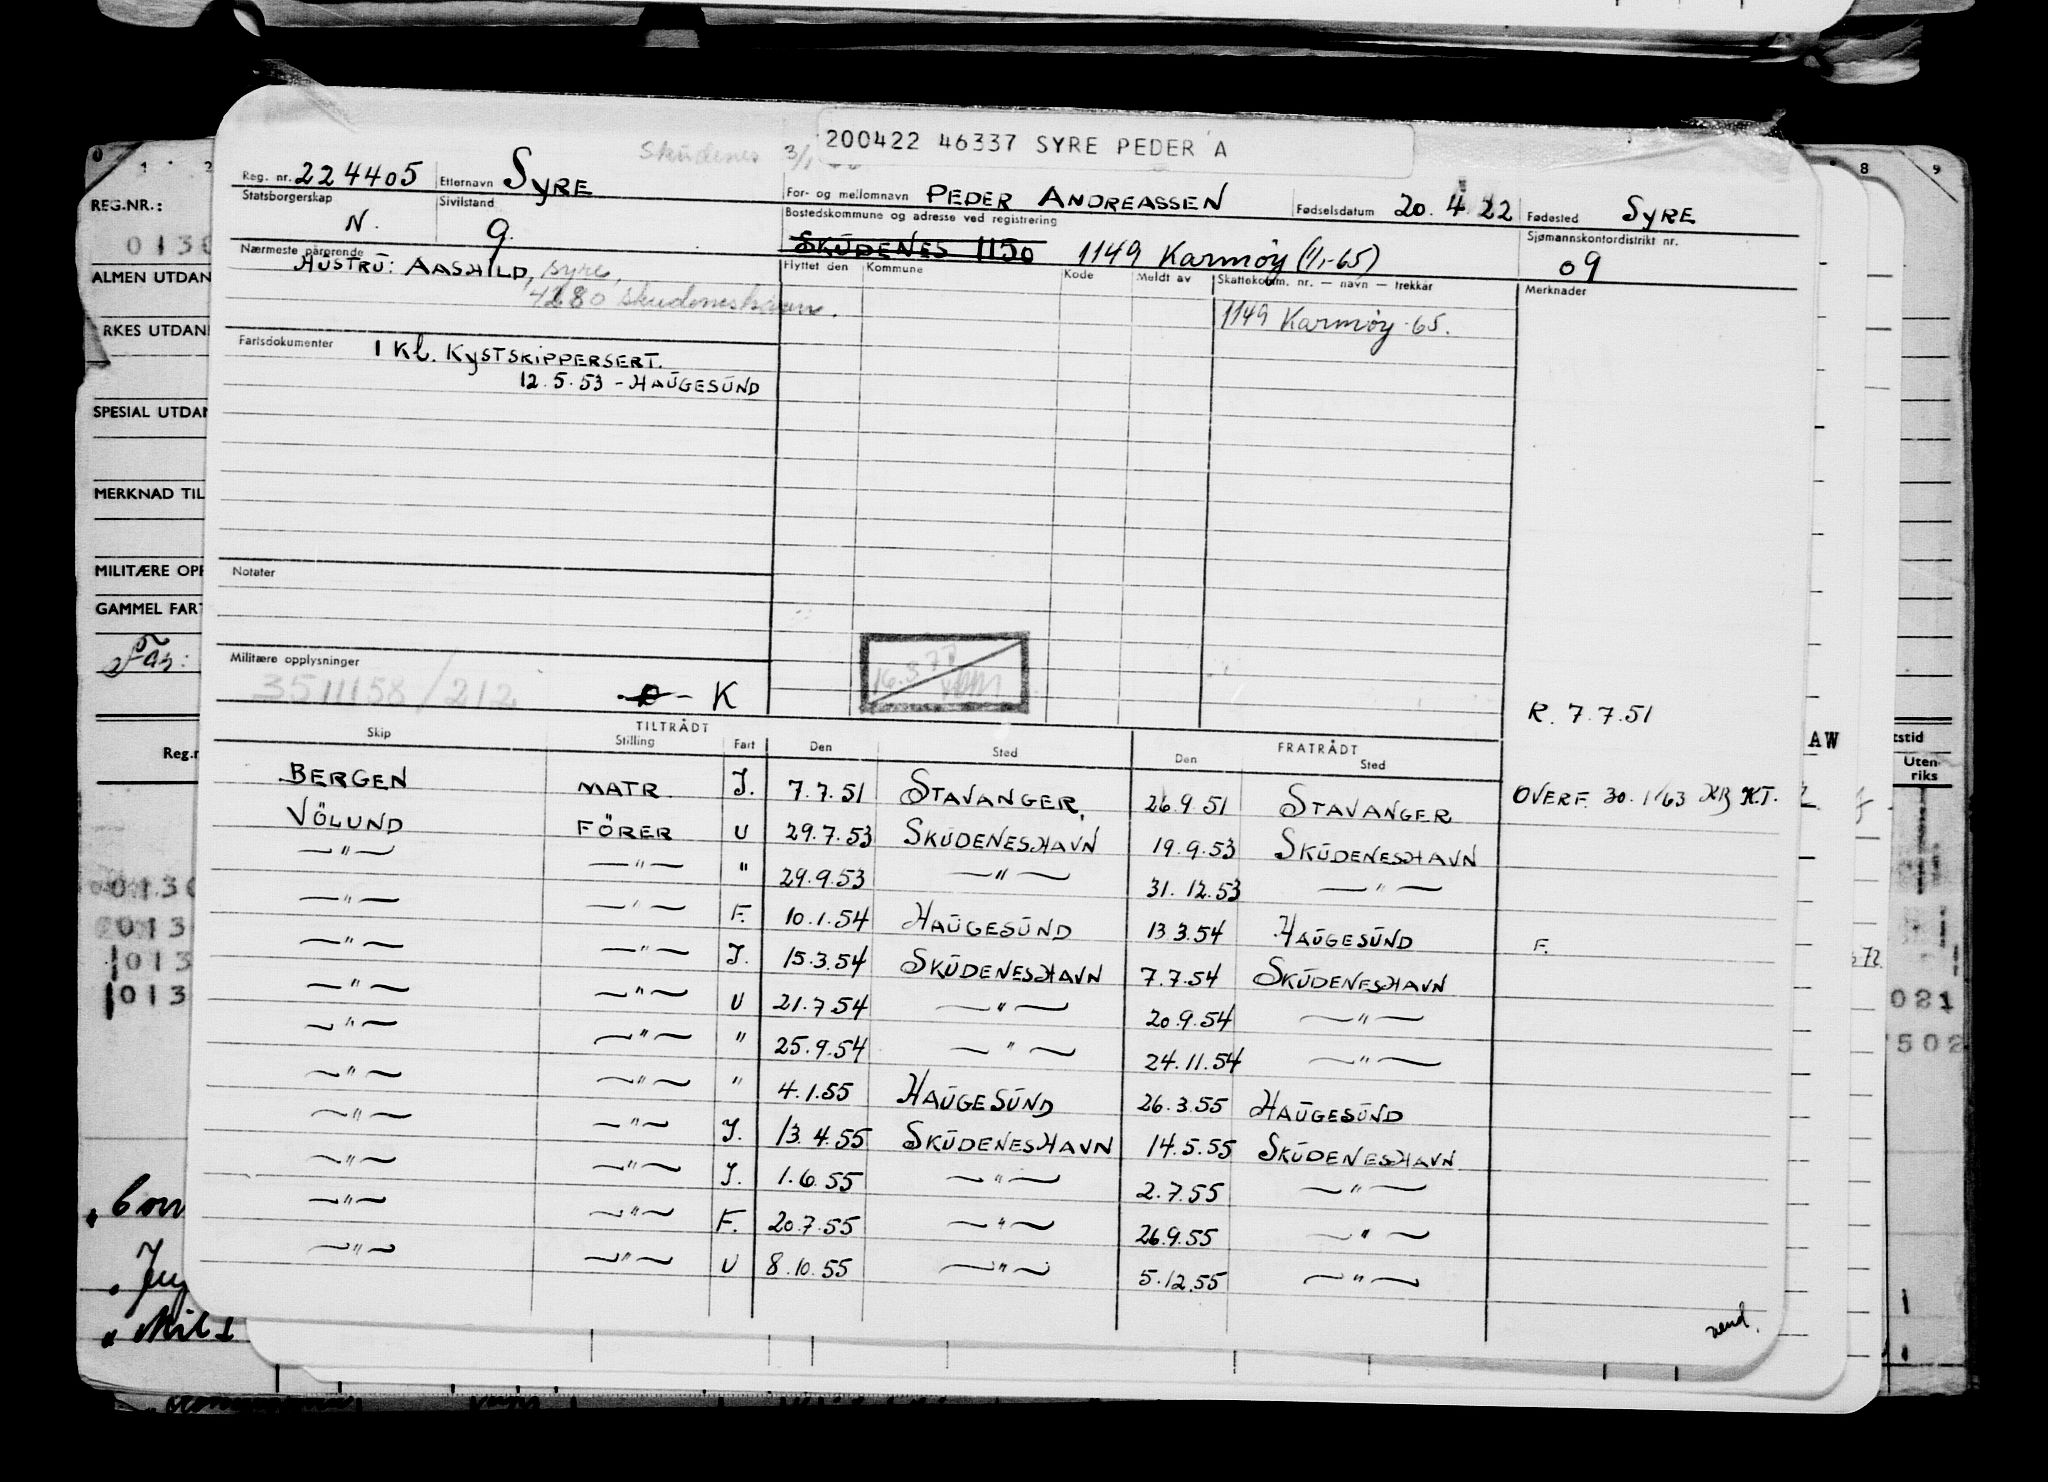 200422 46337 SYRE PEDER A
Skudenes 3/1
Reg. nr. 224405 Etternavn SYRE For- og mellomnavn PEDER ANDREASSEN Fødselsdatum 20.4.22 Fødested SYRE
Statsborgerskap N. Sivilstand g. Bostedskommune og adresse ved registrering SKUDENES 1150 1149 Karmøy (1/1-65) Sjømannskontordistrikt nr. 09
Nærmeste pårørende HUSTRU: AASHILD, Syre, Flyttet den Kommune Kode Meldt av Skattekomm. nr. — navn — trekkår Merknader
4280 Skudeneshavn.
1149 Karmøy-65.
Fartsdokumenter 1 Kl. KYSTSKIPPERSERT.
12.5.53 - HAUGESUND
Notater
Militære opplysninger
3511158/212 K
16.3.77
R. 7.7.51
Skip TILTRÅDT Stilling Fart Den Sted FRATRÅDT Den Sted
BERGEN MATR. J. 7.7.51 STAVANGER, 26.9.51 STAVANGER OVERF. 30.1/63 K.T.
VÖLUND FÖRER U 29.7.53 SKUDENESHAVN 19.9.53 SKUDENESHAVN
—"— —"— " 29.9.53 —"— 31.12.53 —"—
—"— —"— F. 10.1.54 HAUGESUND 13.3.54 HAUGESUND F.
—"— —"— J. 15.3.54 SKUDENESHAVN 7.7.54 SKUDENESHAVN
—"— —"— U 21.7.54 —"— 20.9.54 —"—
—"— —"— " 25.9.54 —"— 24.11.54 —"—
—"— —"— " 4.1.55 HAUGESUND 26.3.55 HAUGESUND
—"— —"— J. 13.4.55 SKUDENESHAVN 14.5.55 SKUDENESHAVN
—"— —"— J. 1.6.55 —"— 2.7.55 —"—
—"— —"— F. 20.7.55 —"— 26.9.55 —"—
—"— —"— U 8.10.55 —"— 5.12.55 —"—
vend.
0 1 2
REG.NR.:
013
ALMEN UTDAN
RKES UTDAN
SPESIAL UTDAN
MERKNAD TIL
MILITÆRE OPP
GAMMEL FART
Reg.n
013
013
013
013
8 9
AW
tstid
Uten-
riks
72
021
502